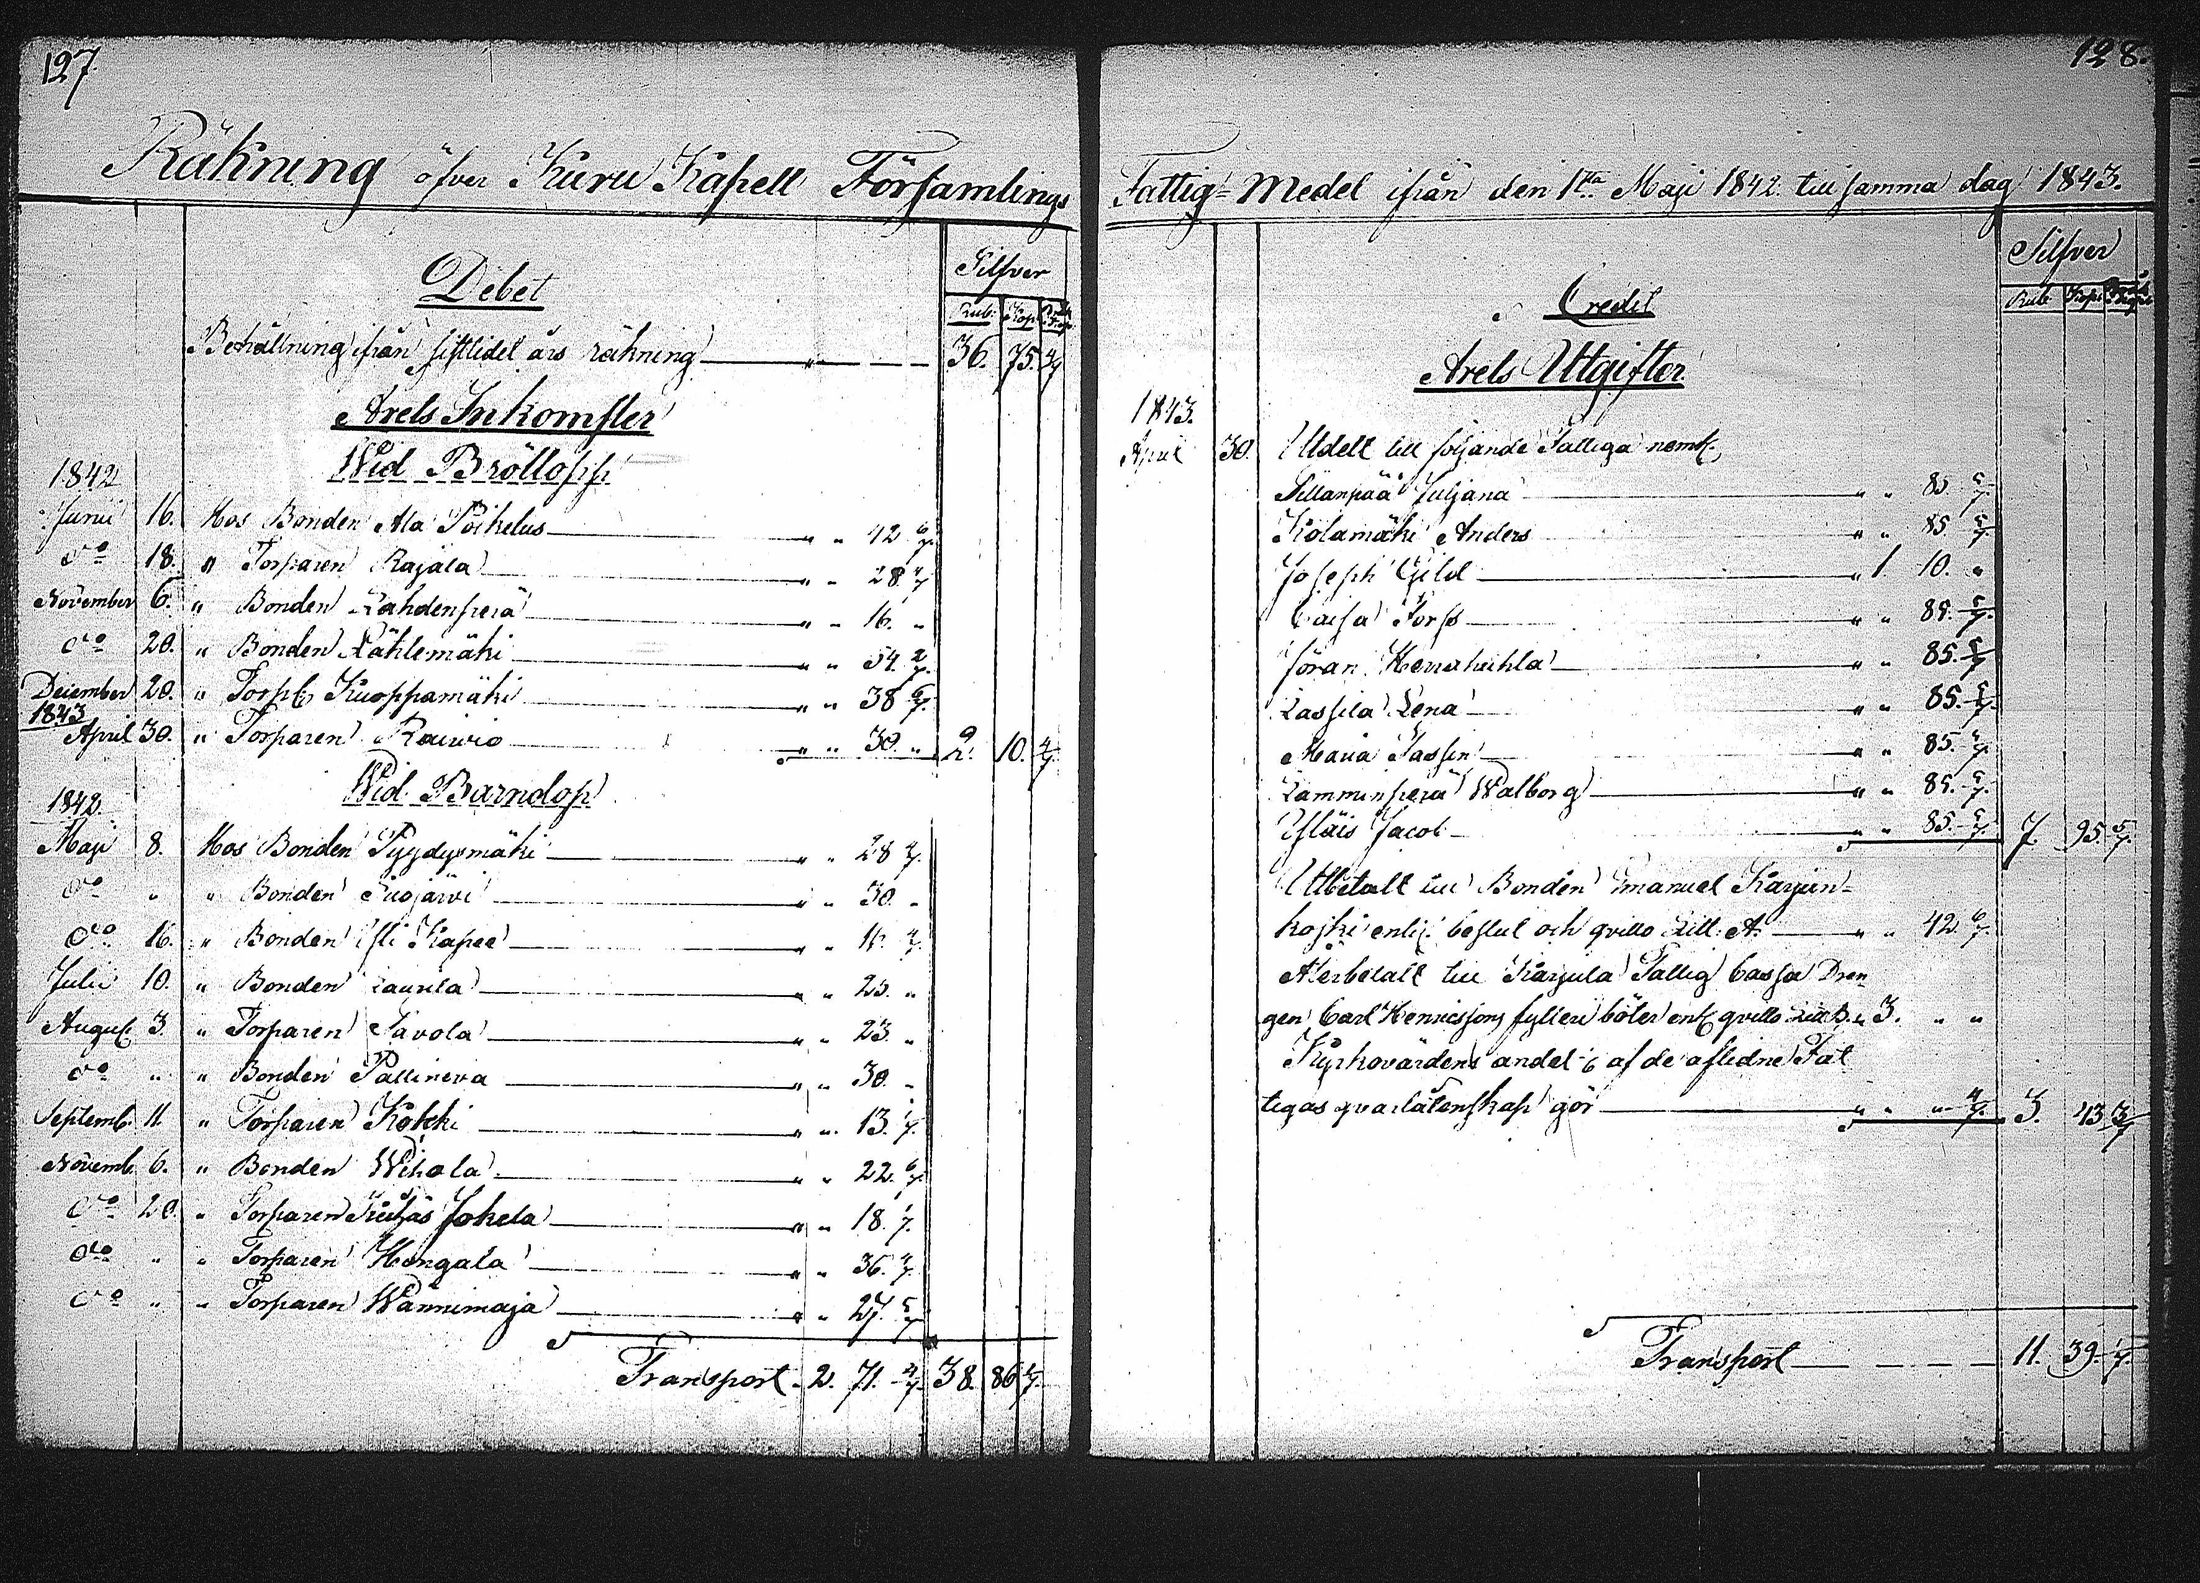 127.
Räkning öfver Kuru Kapell Församlings
Debet
Silfver
Rub. Kop.
Behållning ifrån sistlidet års räkning " 36. 75. 4/7
Årets Inkomster
Wid Bröllopp
1842
Junii 16. Hos Bonden Ala Poikelus " " 42 6/7.
d:o 18. " Torparen Rajala " " 28 4/7
November 6. " Bonden Lahdenperä " " 16. "
d:o 20. " Bonden Lähtemäki " " 54. 2/7.
December 20. " Torp. Kuoppamäki " " 38 6/7.
1843
April 30. " Torparen Raiwio " " 30. " 2. 10. 4/7
Wid Barndop
1842.
Maji 8. Hos Bonden Pyydysmäki " " 28 4/7.
d:o " " Bonden Luojärvi " " 30. "
d:o 16. " Bonden Yli Kapee " " 4/7.
Julii 10. " Bonden Laurila " " 25. "
August. 3. " Torparen Savola " " 23. "
d:o " " Bonden Pallineva " " 30. "
Septemb. 11. " Torparen Kokki " " 13. 1/7.
Novemb. 6. " Bonden Wihola " " 22. 6/7.
d:o 20. " Torparen Jokela " " 18. 1/7.
d:o " " Torparen Hongala " " 36. 4/7.
d:o " " Torparen Wännimaja " " 27. 5/7
Transport 2. 71. 4/7. 38. 86 1/7.
128.
Fattig-Medel ifrån den 1sta Maji 1842 till samma dag 1843.
Silfver
Rub. Kop.
Credit
Årets Utgifter
1843.
April 30. Utdelt till följande Fattiga neml.
Sillanpää Juljana " " 85. 5/7.
Kolamäki Anders " " 85. 5/7.
Joseph Gild " 1. 10. "
Caisa Forss " " 85. 5/7.
Jöran Herrahuhla " " 85. 5/7
Lassila Lena " " 85. 5/7.
Maria Fassin " " 85. 5/7.
Lamminperä Walborg " " 85. 5/7.
Ylläis Jacob " " 85. 5/7 7. 95. 5/7.
Utbetalt till Bonden Emanuel Karjun-
koski enli. beslut och qvitto Litt. A. " " 42. 6/7.
Återbetalt till Karjula Fattig Cassa Dren-
gen Carl Henricssons fylleri böter enl. qvitto Litt B. " 3. " "
Kyrkovärdens andel af de aflidne Fat
tigas qvarlåtenskap gör " " " 4/7. 3. 43 3/7
Transport 11. 39. 1/7.